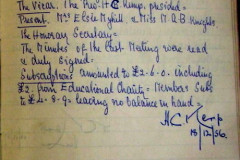 The Vicar. The Revd H C Kemp, presided.
Present. Mrs Elsie Myhill, & Miss M. A. B. Knights
The Honorary Secretary
The Minutes of the Last Meeting were read
& duly signed.
Subscriptions amounted to £2-6-0. including
£2. from Educational Charity = Members Subs
to £4-8-9. leaving no balance in hand =
H C Kemp
18/12/56.